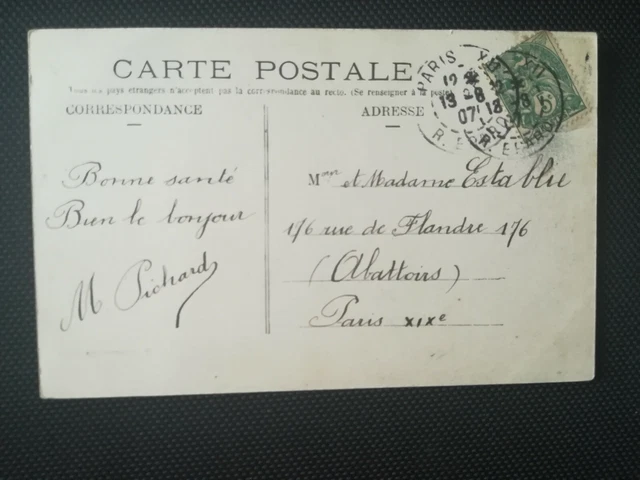 CARTE POSTALE
Tous les pays étrangers n'acceptent pas la correspondance au recto. (Se renseigner à la poste)
CORRESPONDANCE
ADRESSE
PARIS XII
13 - 8
07
Bonne santé
Bien le bonjour
M Pichard
M et Madame Establie
176 rue de Flandre 176
(Abattoirs)
Paris XIXe